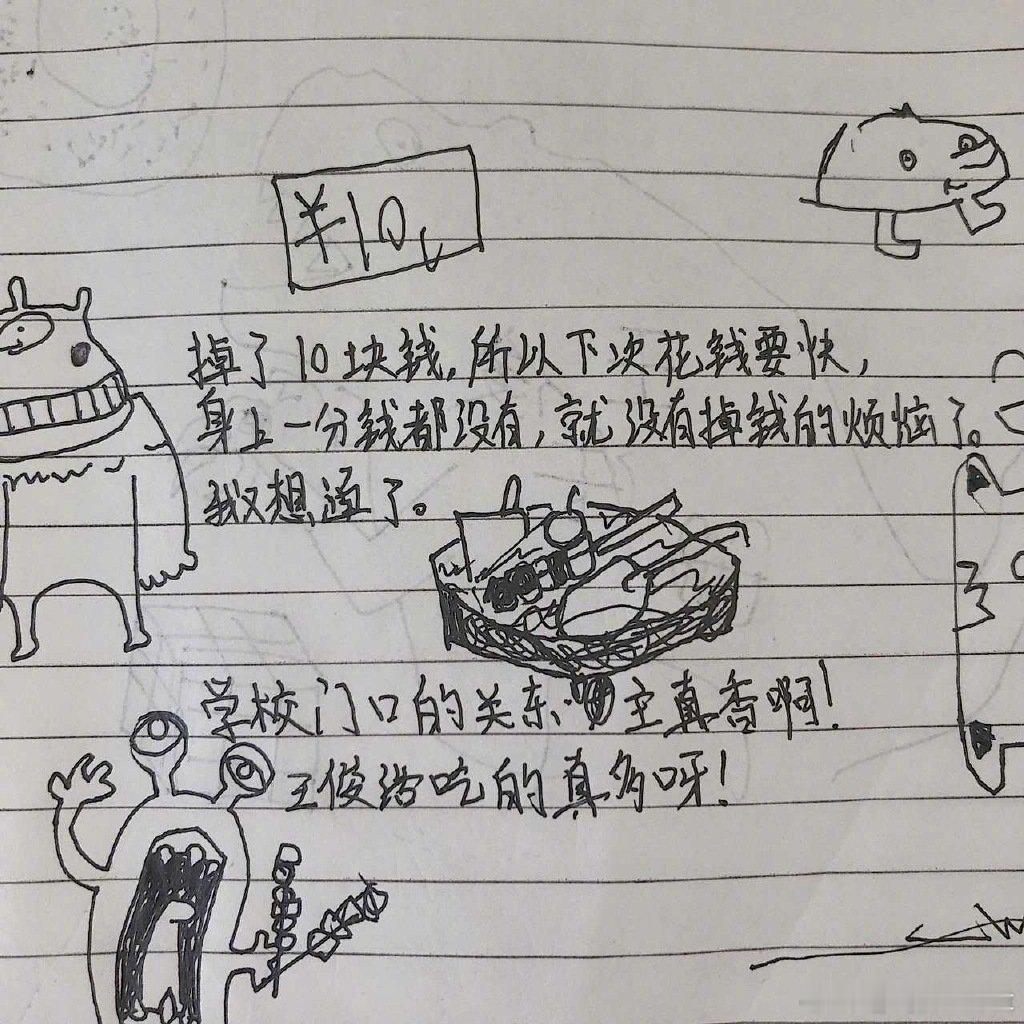 ¥10
掉了10块钱,所以下次花钱要快,
身上一分钱都没有,就没有掉钱的烦恼了。
我又想通了。
学校门口的关东主真香啊!
王俊浩吃的真多呀!